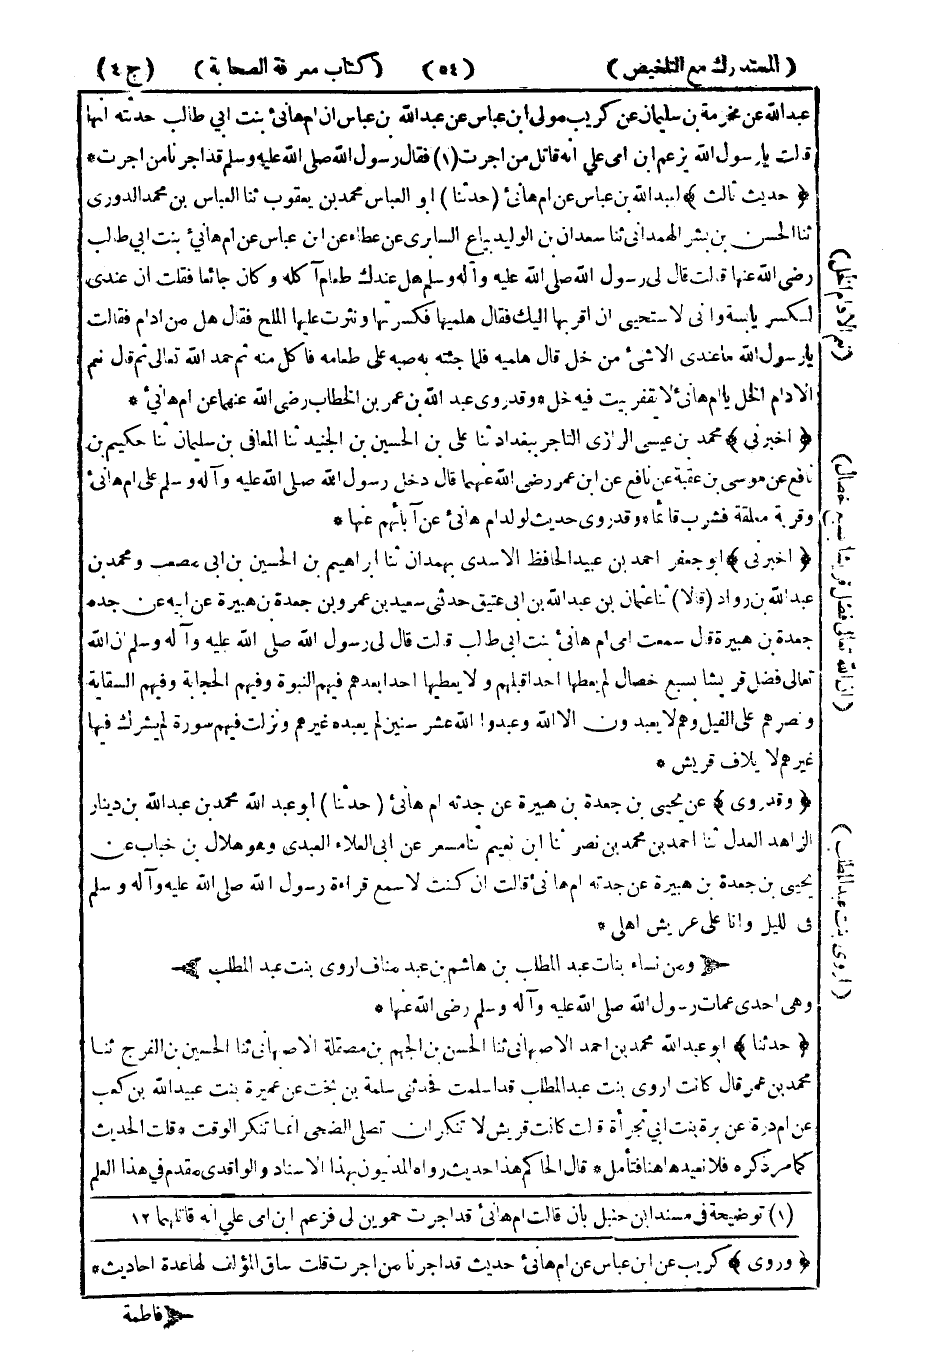 (المستدرك مع التلخيص) (٥٤) (كتاب معرفة الصحابة) (ج٤)
عبدالله عن مخرمة بن سليمان عن كريب مولى ابن عباس عن عبدالله بن عباس ان ام هانئ بنت ابي طالب حدثته انها
قالت يارسول الله يزعم ابن امى علي انه قاتل من اجرت (١) فقال رسول الله صلى الله عليه وسلم قد اجرنا من اجرت *
﴿ حديث ثالث ﴾ لعبدالله بن عباس عن ام هانئ (حدثنا) ابو العباس محمد بن يعقوب ثنا العباس بن محمد الدورى
ثنا الحسن بن بشر الهمدانى ثنا سعدان بن الوليد بياع السابرى عن عطاء عن ابن عباس عن ام هانئ بنت ابي طالب
رضى الله عنها قالت قال لى رسول الله صلى الله عليه وآله وسلم هل عندك طعام آكله وكان جائعا فقلت ان عندى
لكسر يابسة وانى لاستحيى ان اقربها اليك فقال هلميها فكسرتها ونثرت عليها الملح فقال هل من ادام فقالت
يارسول الله ماعندى الاشئ من خل قال هلميه فلما جئته به صبه على طعامه فاكل منه ثم حمد الله تعالى ثم قال نعم
الادام الخل ياام هانئ لايقفر بيت فيه خل * وقدروى عبد الله بن عمر بن الخطاب رضى الله عنهما عن ام هانئ *
﴿ اخبرنى ﴾ محمد بن عيسى الرازى التاجر ببغداد ثنا على بن الحسين بن الجنيد ثنا المعافى بن سليمان ثنا حكيم بن
نافع عن موسى بن عقبة عن نافع عن ابن عمر رضى الله عنهما قال دخل رسول الله صلى الله عليه وآله وسلم على ام هانئ
وقربة معلقة فشرب قائما * وقدروى حديث لولد ام هانئ عن آبائهم عنها *
﴿ اخبرنى ﴾ ابوجعفر احمد بن عبيد الحافظ الاسدى بهمدان ثنا ابراهيم بن الحسين بن ابى مصعب ومحمد بن
عبدالله بن رواد (قالا) ثنا عثمان بن عبدالله بن ابى عتيق حدثنى سعيد بن عمرو بن جعدة بن هبيرة عن ابيه عن جده
جعدة بن هبيرة قال سمعت امى ام هانئ بنت ابى طالب قالت قال لى رسول الله صلى الله عليه وآله وسلم ان الله
تعالى فضل قريشا بسبع خصال لم يعطها احدا قبلهم ولا يعطيها احدا بعدهم فيهم النبوة وفيهم الحجابة وفيهم السقاية
ونصرهم على الفيل وهم لا يعبدون الا الله وعبدوا الله عشر سنين لم يعبده غيرهم ونزلت فيهم سورة لم يشرك فيها
غيرهم لا يلاف قريش *
﴿ وقدروى ﴾ عن يحيى بن جعدة بن هبيرة عن جدته ام هانئ (حدثنا) أبو عبد الله محمد بن عبدالله بن دينار
الزاهد العدل ثنا احمد بن محمد بن نصر ثنا ابن نعيم ثنا مسعر عن ابى العلاء العبدى وهو هلال بن خباب عن
يحيى بن جعدة بن هبيرة عن جدته ام هانئ قالت ان كنت لاسمع قراءة رسول الله صلى الله عليه وآله وسلم
فى الليل وانا على عريش اهلى *
ومن نساء بنات عبد المطلب بن هاشم بن عبد مناف اروى بنت عبد المطلب
وهى احدى عمات رسول الله صلى الله عليه وآله وسلم رضى الله عنها *
﴿ حدثنا ﴾ ابو عبدالله محمد بن احمد الاصبهانى ثنا الحسن بن الجهم بن مصقلة الاصبهانى ثنا الحسين بن الفرج ثنا
محمد بن عمر قال كانت اروى بنت عبدالمطلب قد اسلمت فحدثنى سلمة بن بخت عن عميرة بنت عبيدالله بن كعب
عن ام درة عن برة بنت ابي تجرأة قالت كانت قريش لا تنكر ان تصلى الضحى انما تنكر الوقت * قلت الحديث
كما مر ذكره فلا نعيده اهنا فتأمل * قال الحاكم هذا حديث رواه المدنيون بهذا الاسناد والواقدى مقدم فى هذا العلم
(١) توضيحة فى مسند ابن حنبل بان قالت ام هانئ قد اجرت حموين لى فزعم ابن امى علي انه قاتلهما ١٢
﴿ وروى ﴾ كريب عن ابن عباس عن ام هانئ حديث قد اجرنا من اجرت قلت ساق المؤلف لها عدة احاديث *
فاطمة
(نعم الادام الخل)
(ان الله تعالى فضل قريشا بسبع خصال)
(اروى بنت عبدالمطلب)